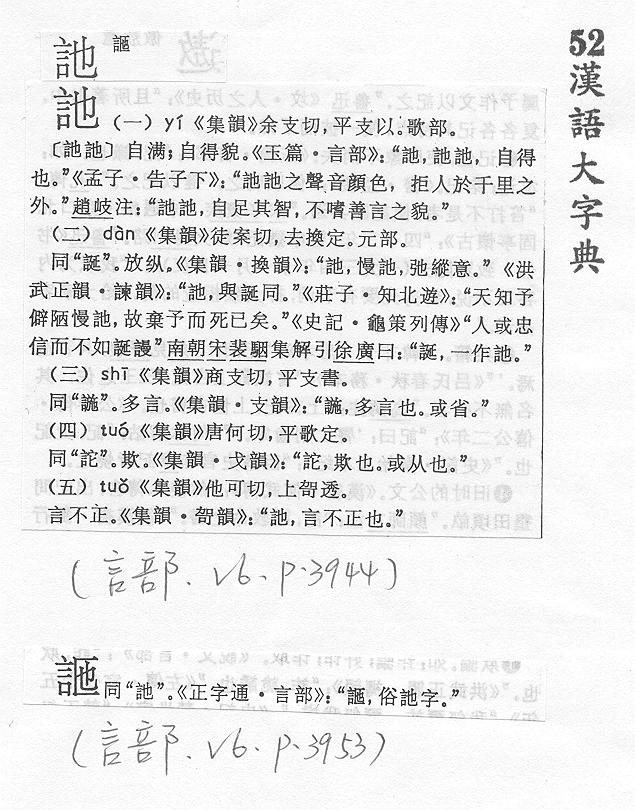 52漢語大字典
訑 䛄
訑 (一) yí《集韻》余支切,平支以。歌部。
〔訑訑〕自满;自得貌。《玉篇·言部》:“訑,訑訑,自得
也。”《孟子·告子下》:“訑訑之聲音顔色,拒人於千里之
外。”趙岐注:“訑訑,自足其智,不嗜善言之貌。”
(二) dàn《集韻》徒案切,去換定。元部。
同“誕”。放纵。《集韻·換韻》:“訑,慢訑,弛縱意。”《洪
武正韻·諫韻》:“訑,與誕同。”《莊子·知北遊》:“天知予
僻陋慢訑,故棄予而死已矣。”《史記·龜策列傳》“人或忠
信而不如誕謾”南朝宋裴駰集解引徐廣曰:“誕,一作訑。”
(三) shī《集韻》商支切,平支書。
同“䛄”。多言。《集韻·支韻》:“䛄,多言也。或省。”
(四) tuó《集韻》唐何切,平歌定。
同“詑”。欺。《集韻·戈韻》:“詑,欺也。或从也。”
(五) tuǒ《集韻》他可切,上哿透。
言不正。《集韻·哿韻》:“訑,言不正也。”
(言部. v6. p.3944)
同“訑”。《正字通·言部》:“俗訑字。”
(言部. v6. p.3953)